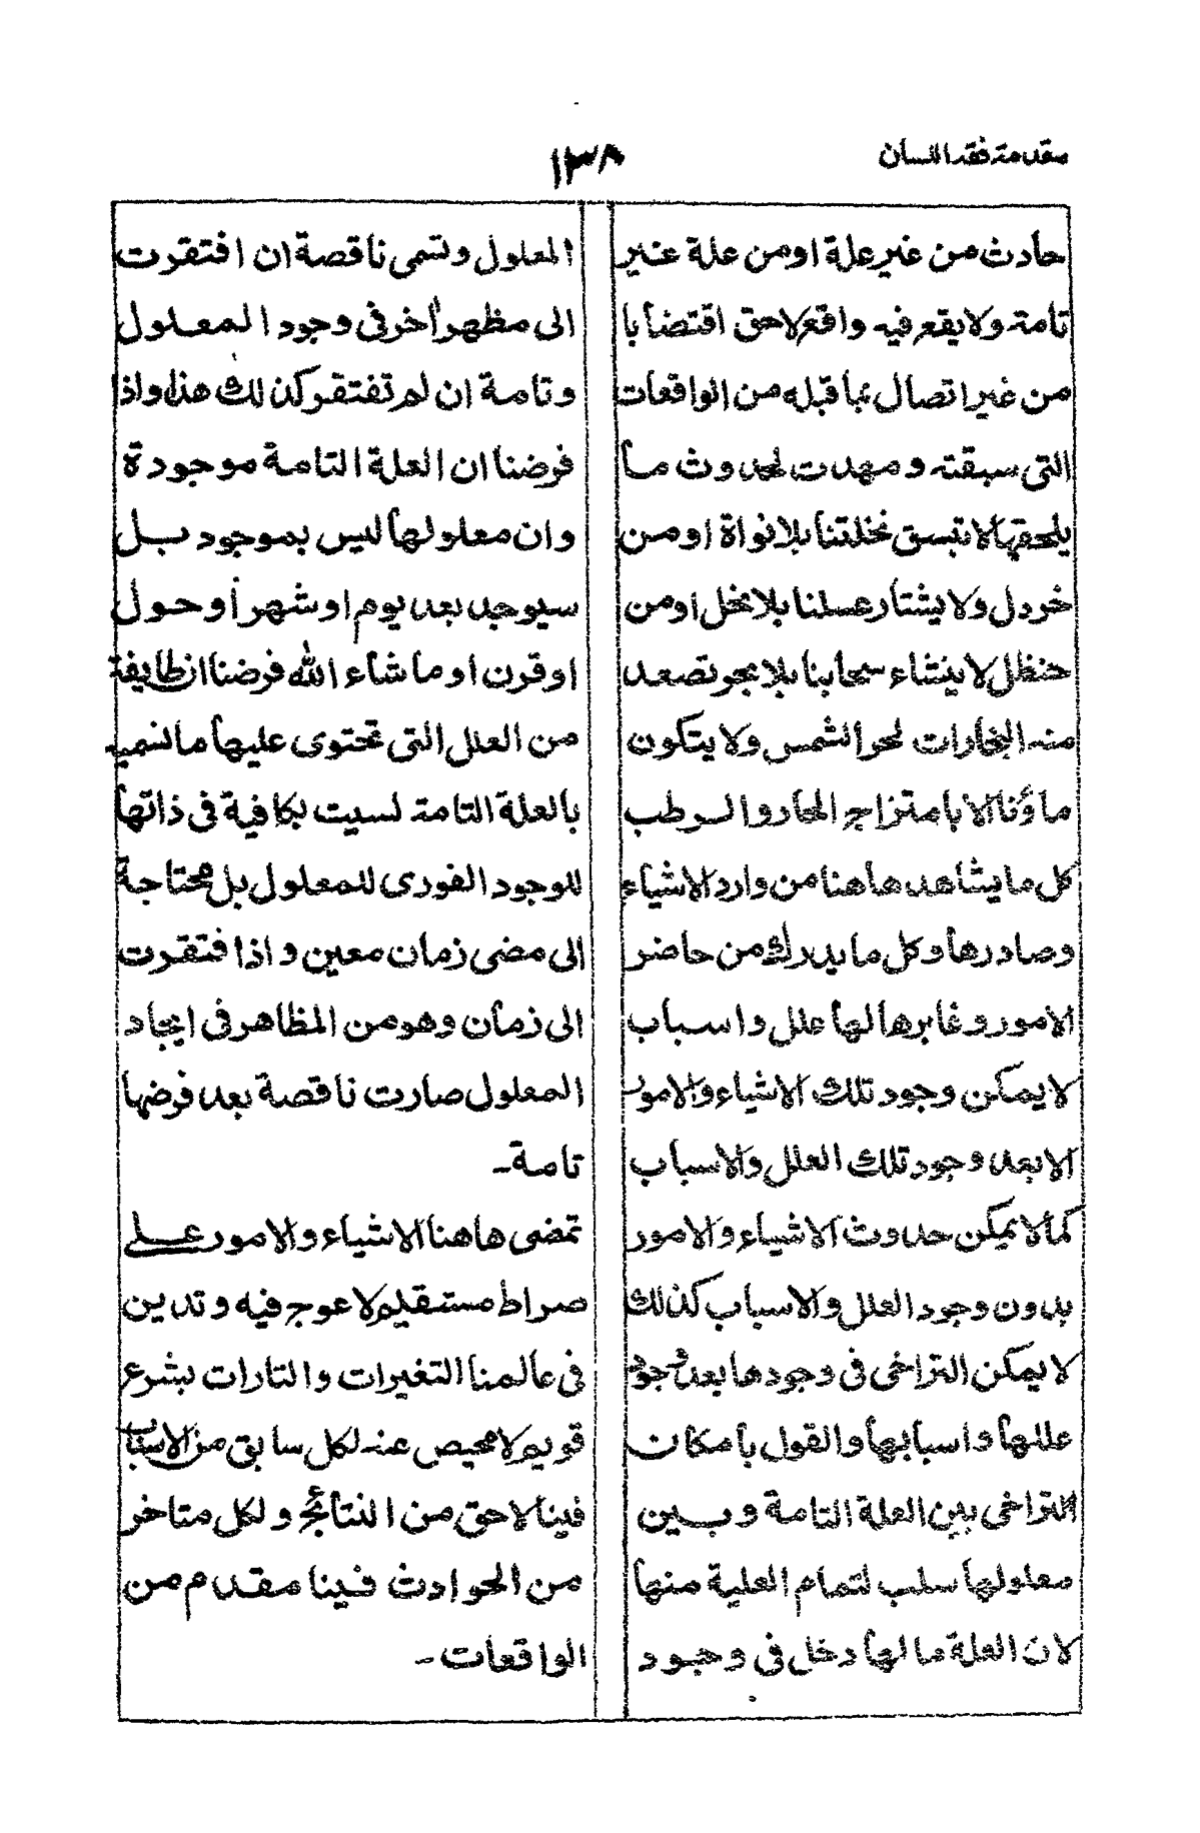 مقدمة فقه اللسان
١٣٨
حادث من غير علة او من علة غير
تامة ولا يقع فيه واقع لاحق اقتضابا
من غير اتصال بما قبله من الواقعات
التى سبقته و مهدت لحدوث ما
يلحقها لا تبسق نخلتنا بلا نواة او من
خردل ولا يشتار عسلنا بلا نحل او من
حنظل لا ينشاء سحابنا بلا بحر تصعد
منه البخارات لحر الشمس ولا يتكون
ماؤنا الا بامتزاج الحار والرطب
كل ما يشاهد هاهنا من وارد الاشياء
وصادرها وكل ما يدرك من حاضر
الامور وغابرها لها علل واسباب
لا يمكن وجود تلك الاشياء والامور
الا بعد وجود تلك العلل والاسباب
كما لا يمكن حدوث الاشياء والامور
بدون وجود العلل والاسباب كذلك
لا يمكن التراخى فى وجودها بعد وجود
عللها واسبابها والقول بامكان
التراخى بين العلة التامة و بين
معلولها سلب لتمام العلية منها
لان العلة ما لها دخل فى وجود
المعلول وتسمى ناقصة ان افتقرت
الى مظهر أخر فى وجود المعلول
وتامة ان لم تفتقر كذلك هذا واذا
فرضنا ان العلة التامة موجودة
وان معلولها ليس بموجود بل
سيوجد بعد يوم او شهر او حول
او قرن او ما شاء الله فرضنا ان طايفة
من العلل التى تحتوى عليها ما نسميه
بالعلة التامة لسيت بكافية فى ذاتها
للوجود الفورى للمعلول بل محتاجة
الى مضى زمان معين و اذا فتقرت
الى زمان وهو من المظاهر فى ايجاد
المعلول صارت ناقصة بعد فرضها
تامة ـ
تمضى هاهنا الاشياء والامور على
صراط مستقيم لا عوج فيه و تدين
فى عالمنا التغيرات والتارات بشرع
قويم لا محيص عنه لكل سابق من الاسباب
فينا لاحق من النتائج و لكل متاخر
من الحوادث فينا مقدم من
الواقعات ـ